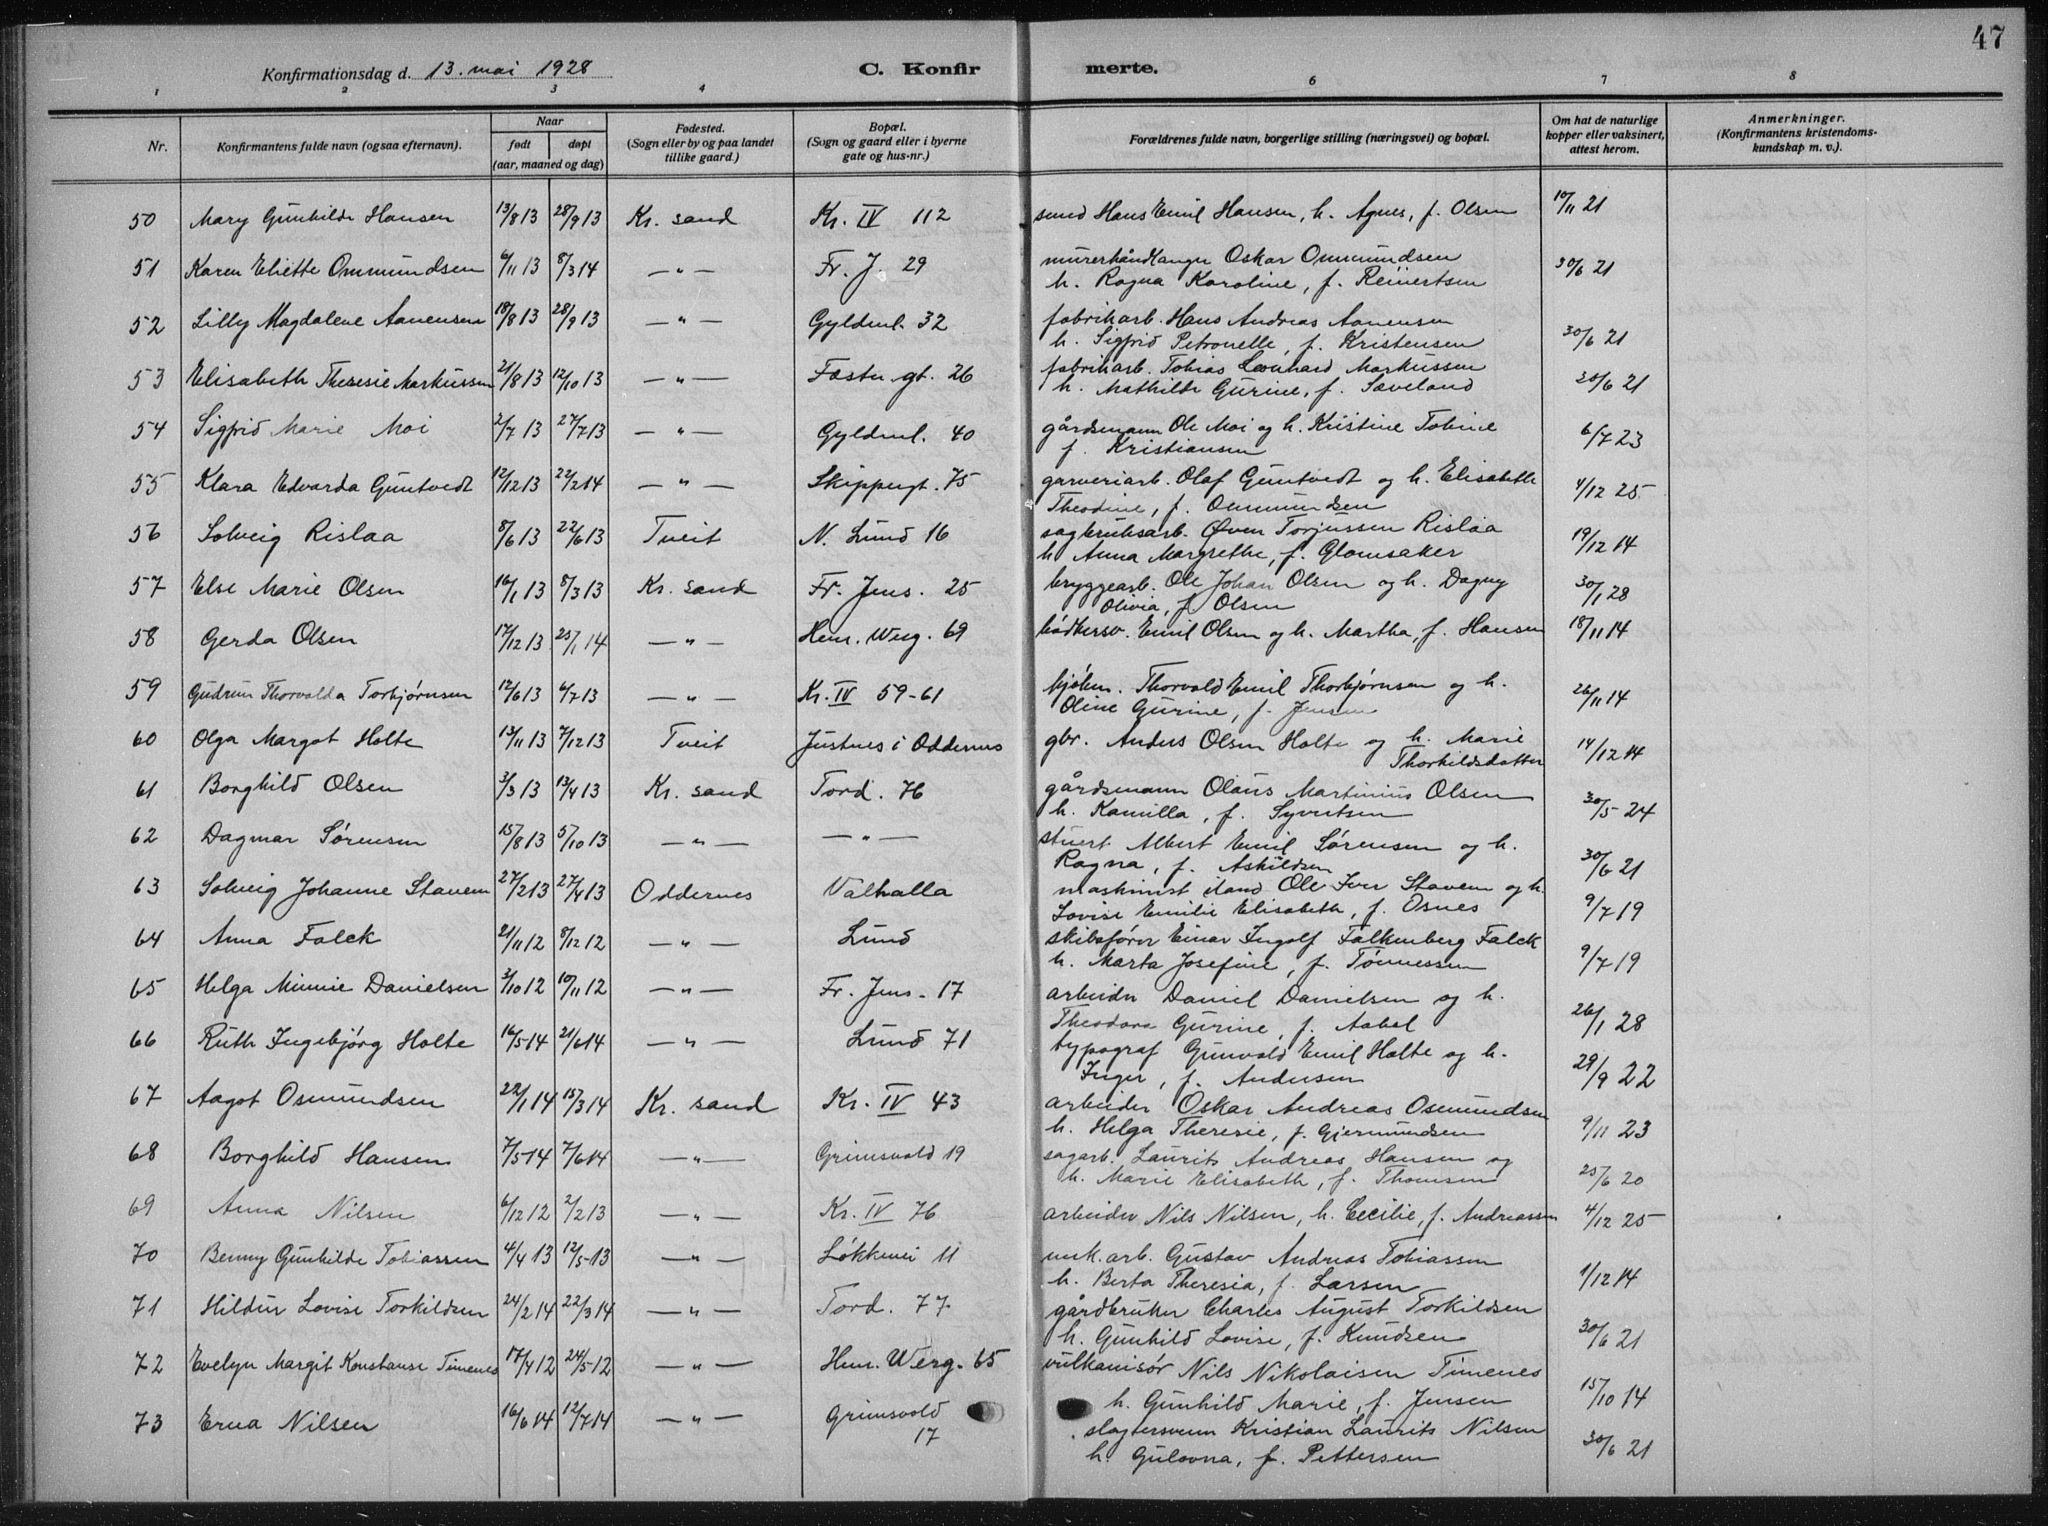 47
Konfirmationsdag d. 13. mai 1928 C. Konfirmerte.
1 2 3 4 6 7 8
Nr. Konfirmantens fulde navn (ogsaa efternavn). Naar født døpt (aar, maaned og dag) Fødested. (Sogn eller by og paa landet tillike gaard.) Bopæl. (Sogn og gaard eller i byerne gate og hus-nr.) Forældrenes fulde navn, borgerlige stilling (næringsvei) og bopæl. Om hat de naturlige kopper eller vaksinert, attest herom. Anmerkninger. (Konfirmantens kristendomskundskap m. v.).
50 Mary Gunhilde Hansen 13/8 13 28/9 13 Kr. sand Kr. IV 112 smed Hans Emil Hansen, h. Agnes, f. Olsen 10/11 21
51 Karen Eliette Ommundsen 6/11 13 8/3 14 — " — Fr. J. 29 murerhåndlanger Oskar Ommundsen
h. Ragna Karoline, f. Reinertsen 30/6 21
52 Lilly Magdalene Aanensen 18/8 13 28/9 13 — " — Gyldenl. 32 fabrikarb. Hans Andreas Aanensen
h. Sigfrid Petronelle, f. Kristensen 30/6 21
53 Elisabeth Theresie Markussen 21/8 13 12/10 13 — " — Fæstn. gt. 26 fabrikarb. Tobias Leonhard Markussen
h. Mathilde Gurine, f. Sæveland 30/6 21
54 Sigfrid Marie Moi 2/7 13 27/7 13 — " — Gyldenl. 40 gårdsmann Ole Moi og h. Kristine Tobine
f. Kristiansen 6/7 23
55 Klara Edvarda Guntvedt 12/12 13 22/2 14 — " — Skippergt. 75 garveriarb. Olaf Guntvedt og h. Elisabeth
Theodine, f. Ommundsen 4/12 25
56 Solveig Rislaa 8/6 13 22/6 13 Tveit N. Lund 16 sagbruksarb. Øven Torjussen Rislaa
h. Anna Margrethe, f. Glomsaker 19/12 14
57 Else Marie Olsen 16/1 13 8/3 13 Kr. sand Fr. Jens. 25 bryggearb. Ole Johan Olsen og h. Dagny
Olivia, f. Olsen 30/1 28
58 Gerda Olsen 17/12 13 25/1 14 — " — Henr. Werg. 69 bødkersv. Emil Olsen og h. Martha, f. Hansen 18/11 14
59 Gudrun Thorvalda Torbjørnsen 12/6 13 6/7 13 — " — Kr. IV 59-61 kjøbm. Thorvald Emil Thorbjørnsen og h.
Oline Gurine, f. Jensen 26/11 14
60 Olga Margot Holte 13/11 13 7/12 13 Tveit Justnes i Oddernes gbr. Anders Olsen Holte og h. Marie
Thorkildsdatter 14/12 14
61 Borghild Olsen 3/3 13 13/4 13 Kr. sand Tord. 76 gårdsmann Olaus Martinius Olsen
h. Kamilla, f. Syvertsen 30/5 24
62 Dagmar Sørensen 15/8 13 5/10 13 — " — — " — stuert Albert Emil Sørensen og h.
Ragna, f. Askildsen 30/6 21
63 Solveig Johanne Stavem 27/2 13 27/4 13 Oddernes Valhalla maskinist iland Ole Iver Stavem og h.
Lovise Emilie Elisabeth, f. Osnes 9/7 19
64 Anna Falck 21/11 12 8/12 12 — " — Lund skibsfører Einar Ingolf Falkenberg Falck
h. Marta Josefine, f. Tønnessen 9/7 19
65 Helga Minnie Danielsen 3/10 12 10/11 12 — " — Fr. Jens. 17 arbeider Daniel Danielsen og h.
Theodora Gurine, f. Aabel 26/1 28
66 Ruth Ingebjørg Holte 16/5 14 21/6 14 — " — Lund 71 typograf Gunvald Emil Holte og h.
Inger, f. Andersen 29/9 22
67 Aagot Osmundsen 22/1 14 15/3 14 Kr. sand Kr. IV 43 arbeider Oskar Andreas Osmundsen
h. Helga Theresie, f. Gjermundsen 9/11 23
68 Borghild Hansen 7/5 14 7/6 14 — " — Grimsvold 19 sagarb. Laurits Andreas Hansen og
h. Marie Elisabeth, f. Thomsen 25/6 20
69 Anna Nilsen 6/12 12 2/2 13 — " — Kr. IV 76 arbeider Nils Nilsen, h. Cecilie, f. Andreassen 4/12 25
70 Benny Gunhilde Tobiassen 4/4 13 12/5 13 — " — Løkkevei 11 mek. arb. Gustav Andreas Tobiassen
h. Berta Theresia, f. Larsen 1/12 14
71 Hildur Lovise Torkildsen 24/2 14 22/3 14 — " — Tord. 77 gårdbruker Charles August Torkildsen
h. Gunhild Lovise, f. Knudsen 30/6 21
72 Evelyn Margit Konstanse Timenes 17/4 12 24/5 12 — " — Henr. Werg. 65 vulkanisør Nils Nikolaisen Timenes
h. Gunhild Marie, f. Jensen 15/10 14
73 Erna Nilsen 16/6 14 12/7 14 — " — Grimsvold 17 slagtersvenn Kristian Laurits Nilsen
h. Gulovna, f. Pettersen 30/6 21